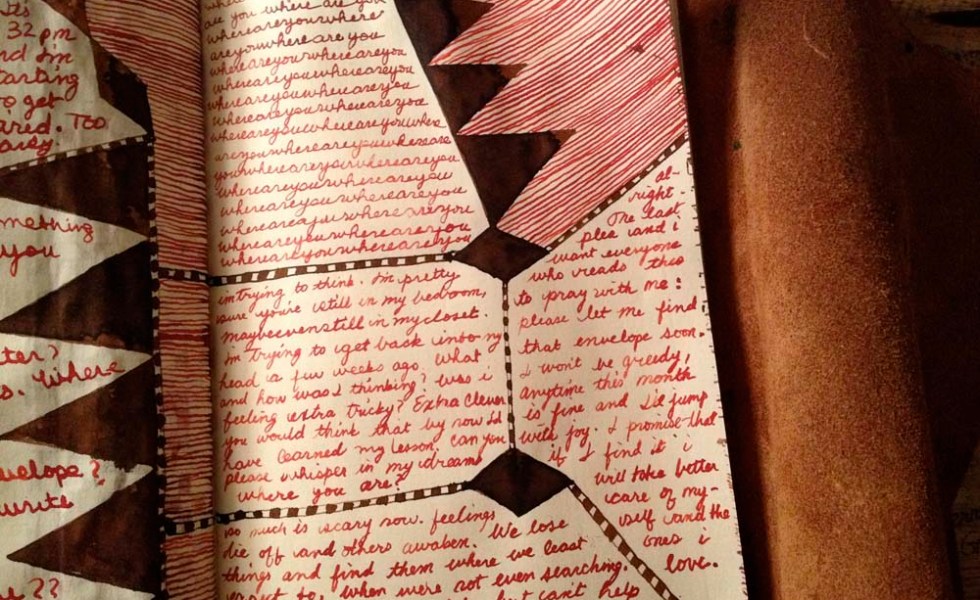 It's
32 pm
nd i'm
tarting
to get
ared. Too
away.
mething
you
ter?
s. Where
nvelope?
write
??
are you where are you
whereareyouwhere
areyouwhere are you
whereareyouwhereareyou
whereareyouwhereareyou
whereareyouwhereareyou
whereareyouwhereareyou
whereareyouwhereareyouwhere
areyouwhereareyouwhereare
youwhereareyouwhereareyou
whereareyouwhereareyou
whereareyouwhereareyou
whereareyouwhereareyou
whereareyouwhereareyou
whereareyouwhereareyou
im trying to think. I'm pretty
sure you're still in my bedroom,
maybeevenstill in mycloset.
im trying to get back into my
head a few weeks ago. What
and how was I thinking? Was i
feeling extra tricky? Extra Clever
you would think that by now I'd
have learned my lesson. can you
please whisper in my dreams
where you are?
so much is scary now. feelings
die off and others awaken. We lose
things and find them where we least
expect to, when we're not even searching.
but can't help
al-
right.
One last
plea and i
want everyone
who reads this
to pray with me:
please let me find
that envelope soon.
I won't be greedy,
anytime this month
is fine and I'd jump
with joy. I promise that
if I find it i
will take better
care of my-
self and the
ones i
love.